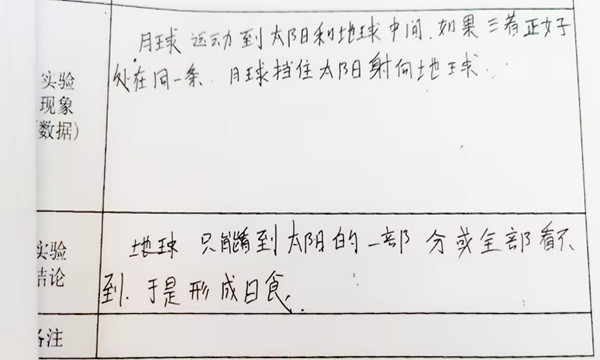 月球 运动到太阳和地球中间,如果三者正好
处在同一条 月球挡住太阳射向地球.
实验
现象
(数据)
地球 只能看到太阳的一部分或全部看不
到.于是形成日食.
实验
结论
备注